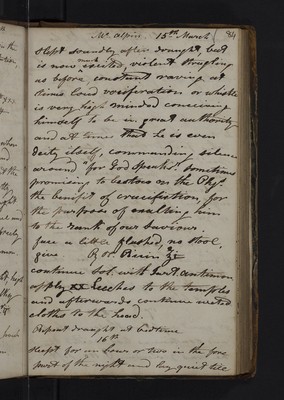 Mr Alpin 15th March 84
Slept soundly after draught, but
is now much excited, violent strugling
as before constant raving at
times loud vociferation or whistle
is very high minded conceiving
himself to be in great authority
and at times that he is even
deity itself, commanding silence
around "for God speaks". Sometimes
promising to bestow on the Phyn
the benefit of crucifixion, for
the purposes of exalting him
to the rank of our Saviour.
face a little flushed, no stool.
give Ol Ricin
continue Sol. with antimon
apply Leeches to the temples
and afterwards continue wetted
cloths to the head.
Repeat draught at bedtime
16th
Slept for an hour or two in the fore
part of the night and lay quiet till